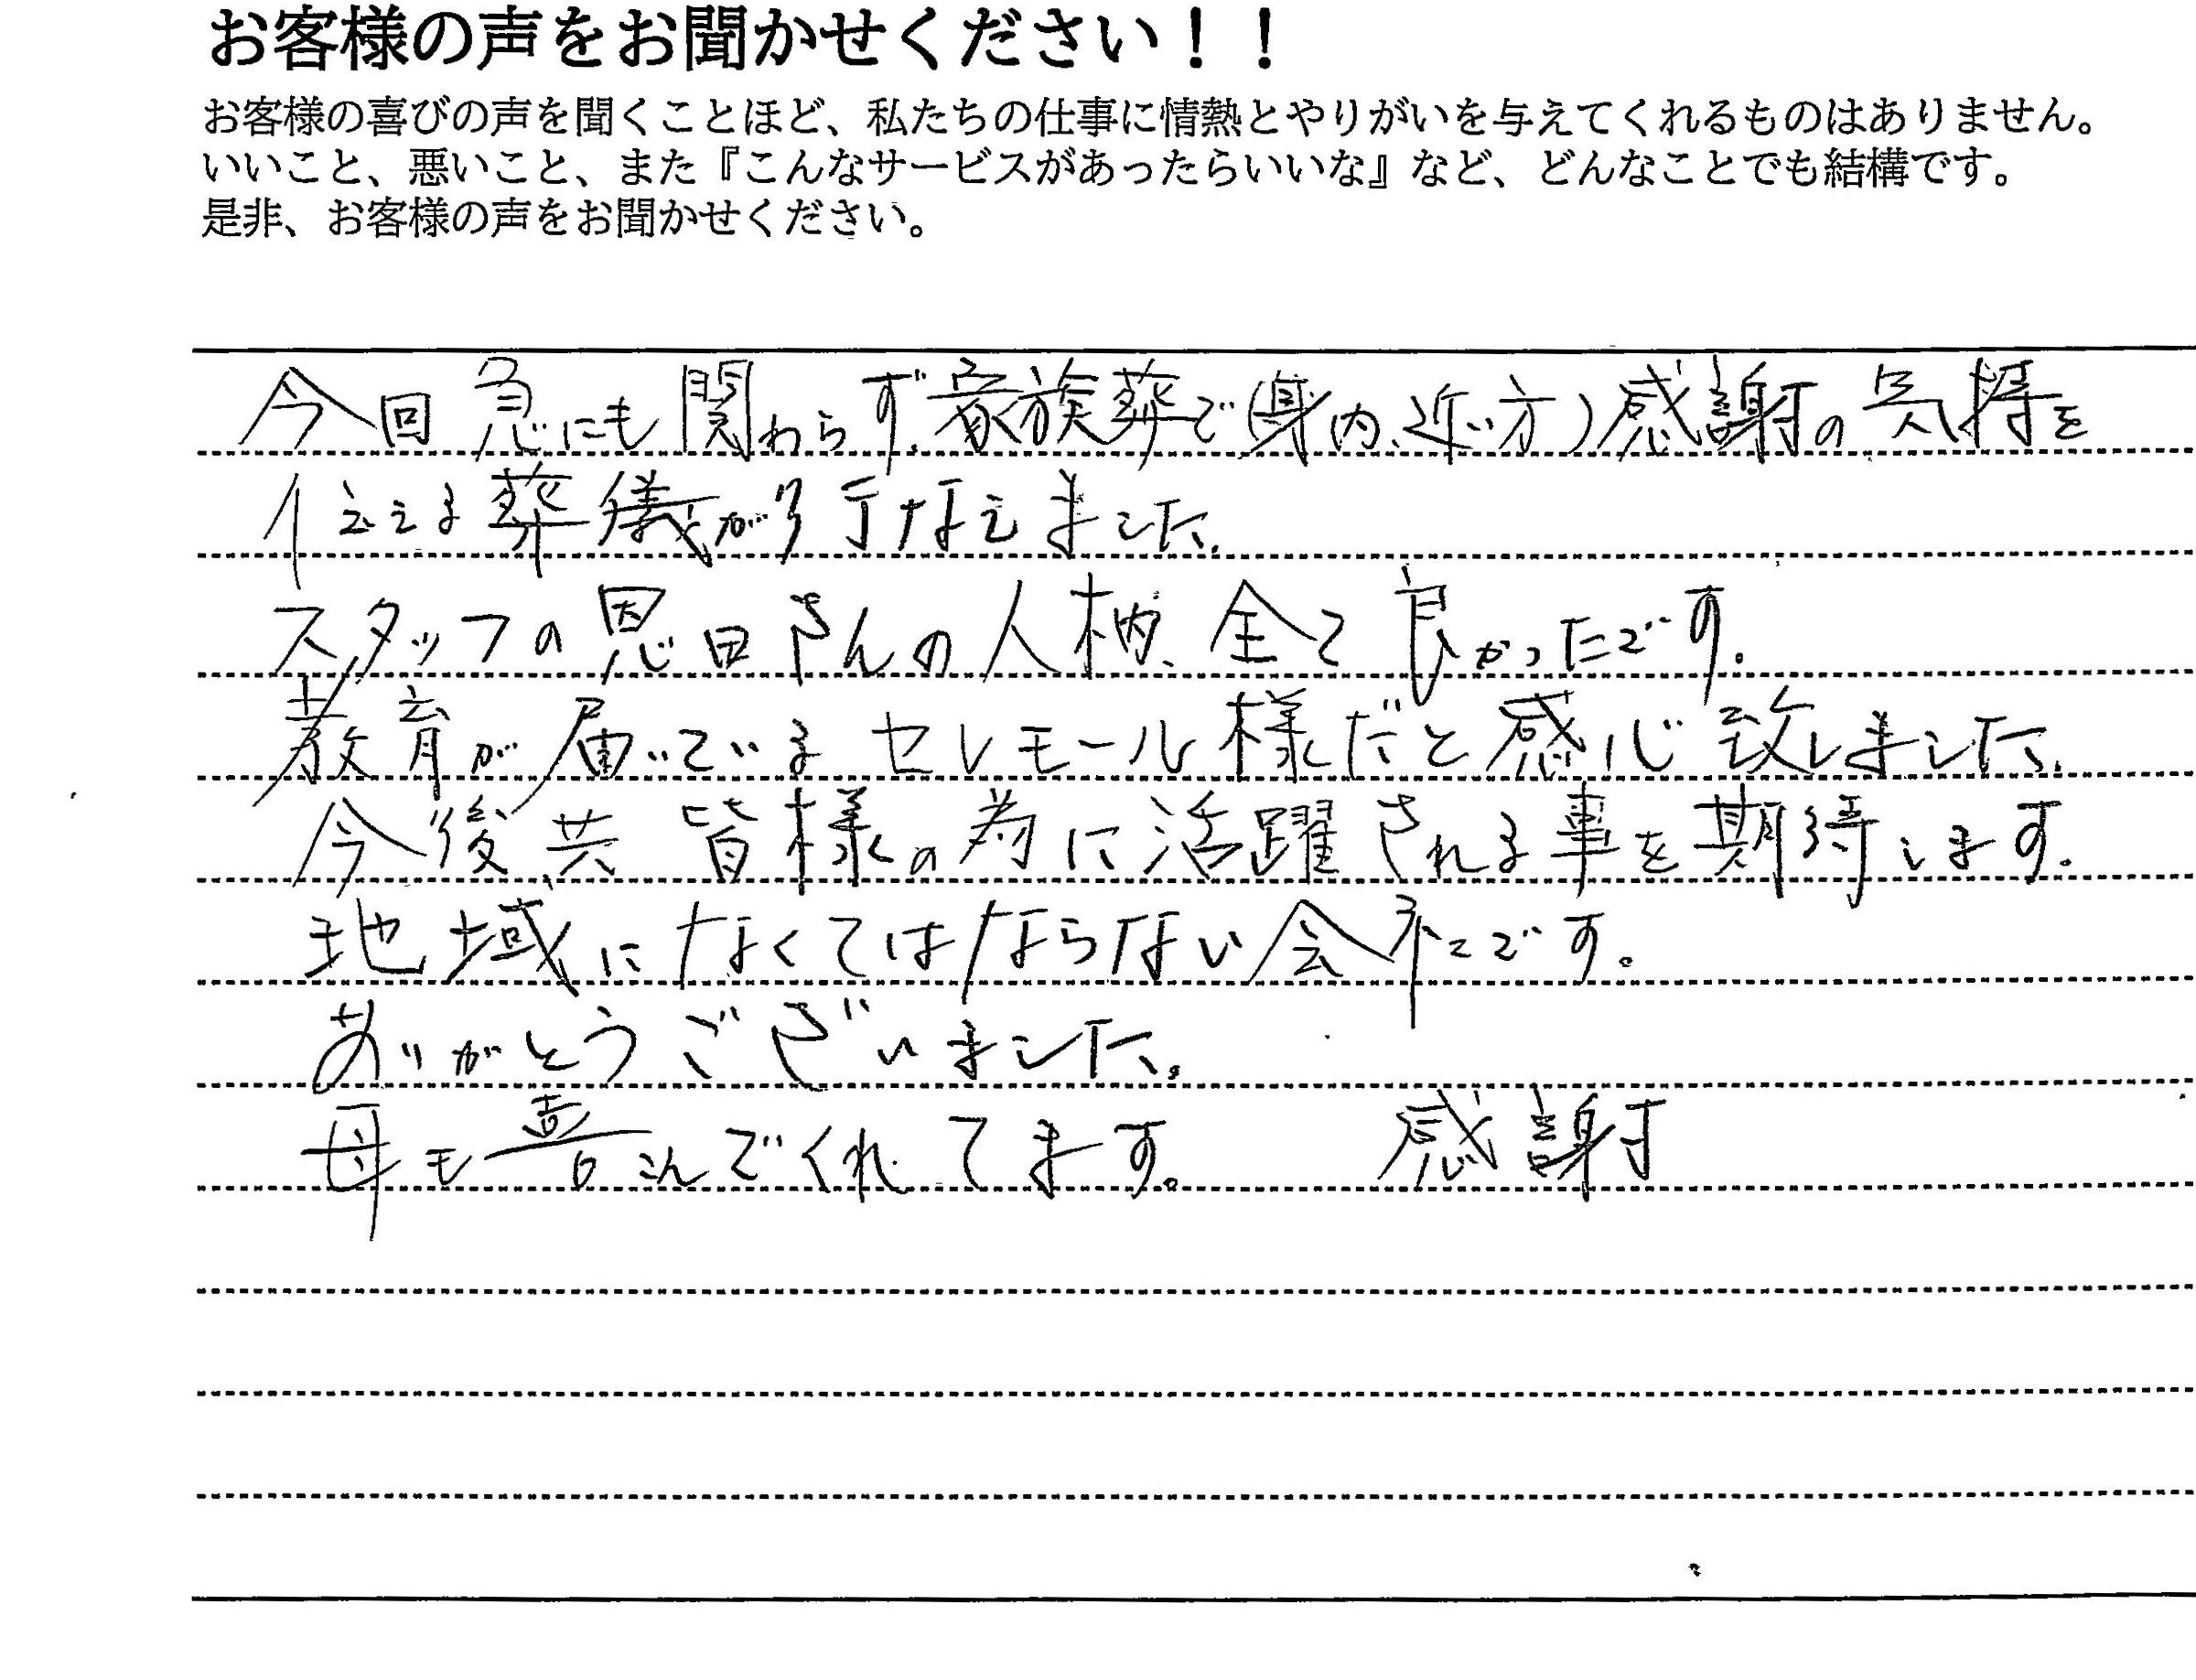 お客様の声をお聞かせください！！
お客様の喜びの声を聞くことほど、私たちの仕事に情熱とやりがいを与えてくれるものはありません。
いいこと、悪いこと、また『こんなサービスがあったらいいな』など、どんなことでも結構です。
是非、お客様の声をお聞かせください。
今回 急にも関わらず、家族葬で（身内、近い方）感謝の気持を
伝える葬儀が行なえました。
スタッフの恩田さんの人柄、全て良かったです。
教育が届いているセレモール様だと感心致しました。
今後共 皆様の為に活躍される事を期待します。
地域になくてはならない会社です。
ありがとうございました。
母も喜こんでくれてます。 感謝